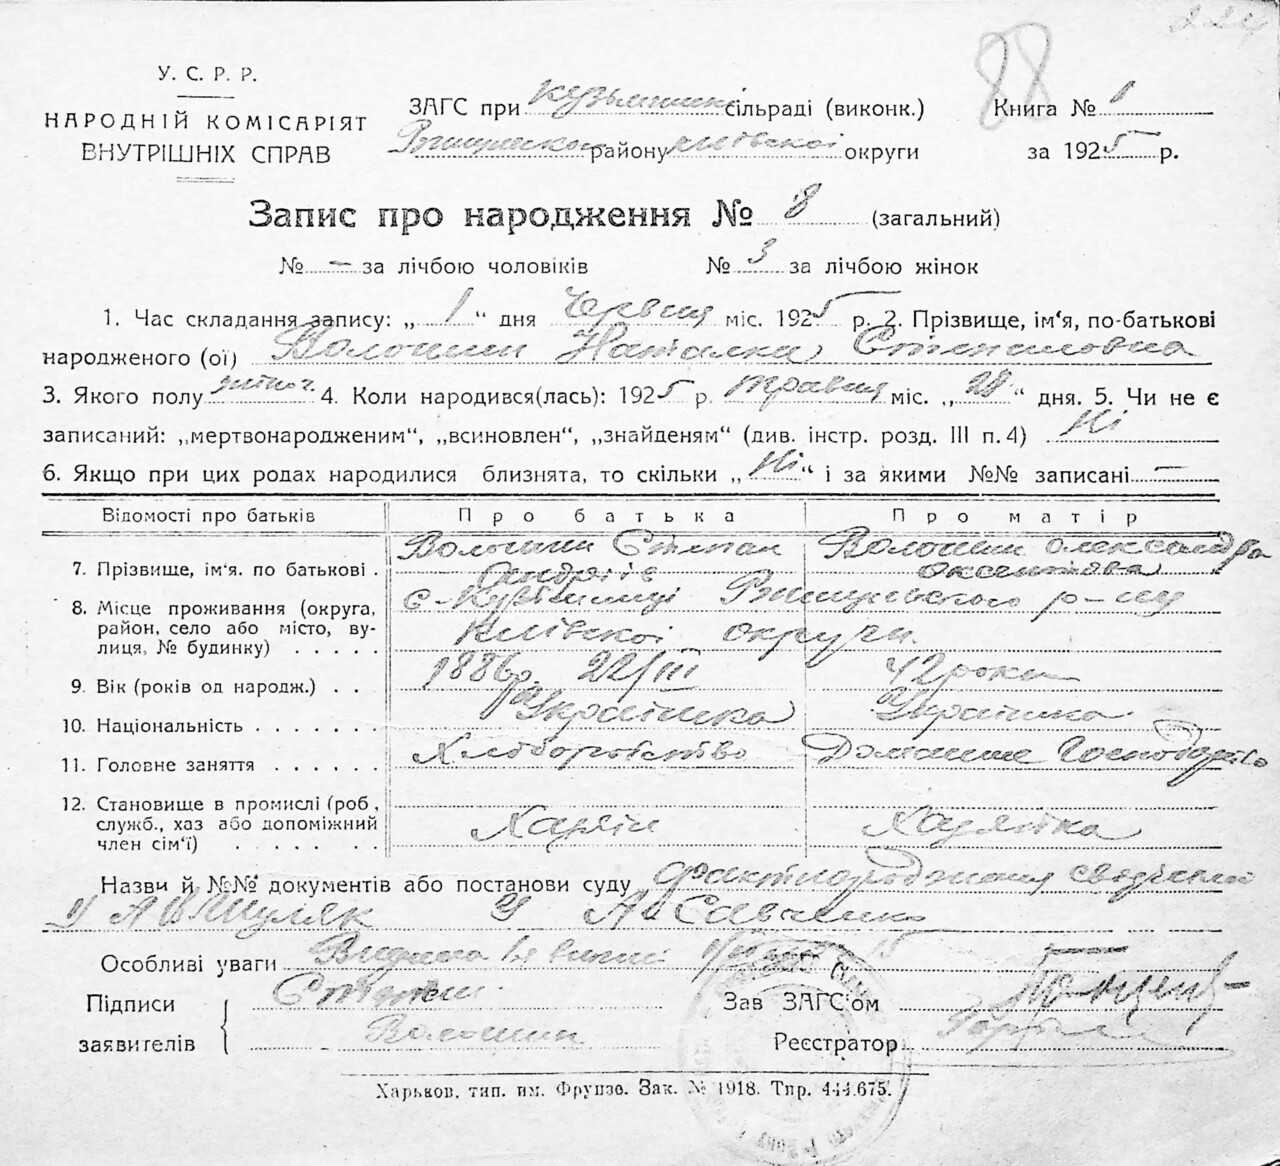 224
88
У. С. Р. Р.
НАРОДНІЙ КОМІСАРІЯТ
ВНУТРІШНІХ СПРАВ
ЗАГС при сільраді (виконк.)
району київської округи
Книга № 1
за 1925 р.
Запис про народження № 8 (загальний)
№ — за лічбою чоловіків № 3 за лічбою жінок
1. Час складання запису: „ 1 “ дня Червня міс. 1925 р. 2. Прізвище, ім‘я, по-батькові
народженого (ої) Волошин Наталка Степановна
3. Якого полу жіноч. 4. Коли народився(лась): 1925 р. травня міс. „ 28 “ дня. 5. Чи не є
записаний: „мертвонародженим“, „всиновлен“, „знайденям“ (див. інстр. розд. III п. 4) Ні
6. Якщо при цих родах народилися близнята, то скільки „ Ні “ і за якими №№ записані —
Відомості про батьків Про батька Про матір
7. Прізвище, ім‘я. по батькові . Волошин Степан Волошин Олександра
Андріїв
8. Місце проживання (округа,
район, село або місто, вулиця, № будинку) . . . . . київскої округи.
9. Вік (років од народж.) . . 1886 р. 22/III 42 роки
10. Національність . . . . . . . Українка Українка
11. Головне заняття . . . . . . Хлоборобство Домашнє Господарство
12. Становище в промислі (роб,
служб., хаз або допоміжний
член сім‘ї) . . . . . . Хазяїн Хазяйка
Назви й №№ документів або постанови суду факт народження
А Савченко
Особливі уваги Видана
Підписи Степан
заявителів Волошин
Зав ЗАГС‘ом
Реєстратор
Харьков. тип. им. Фрунзе. Зак. № 1918. Тир. 444.675.